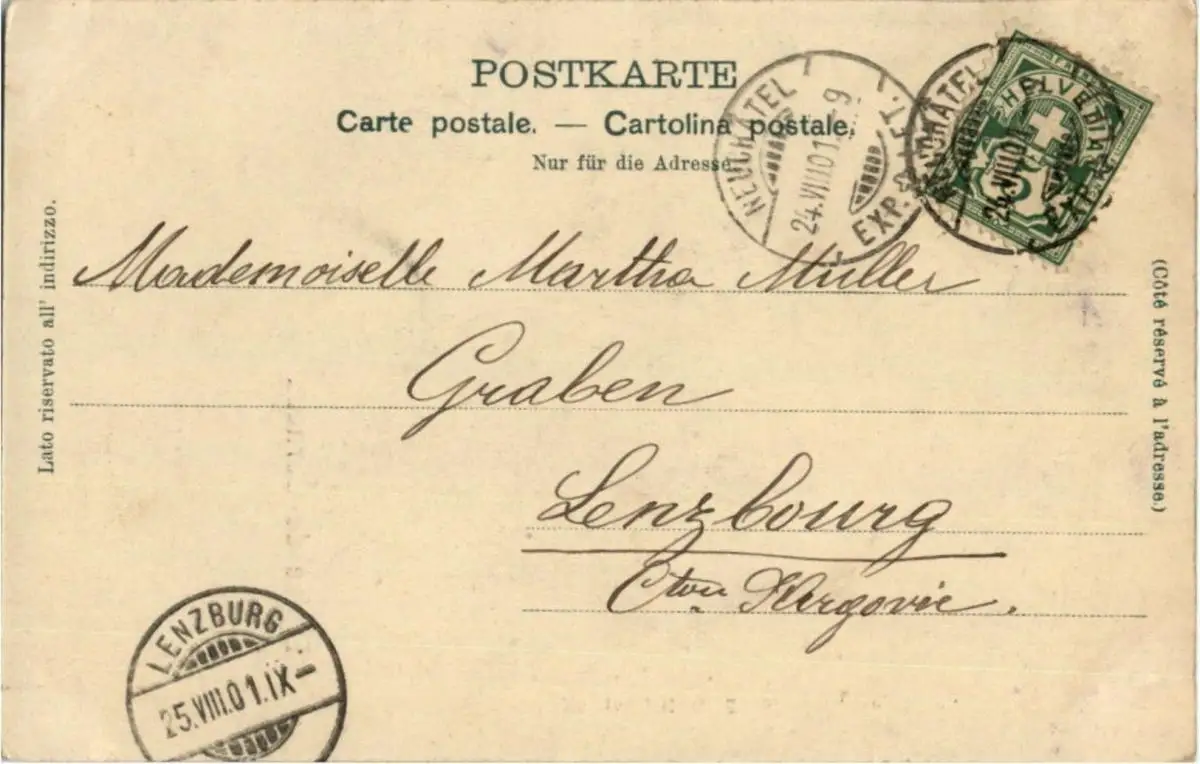 POSTKARTE
Carte postale. — Cartolina postale.
Nur für die Adresse
NEUCHÂTEL
24.VIII.01 - 9
EXP. LET.
NEUCHÂTEL
24.VIII.01
EXP.
HELVETIA
5
Lato riservato all' indirizzo.
Mademoiselle Martha Müller
Graben
Lenzbourg
Cton Argovie.
(Côté réservé à l'adresse.)
LENZBURG
25.VIII.01.IX–